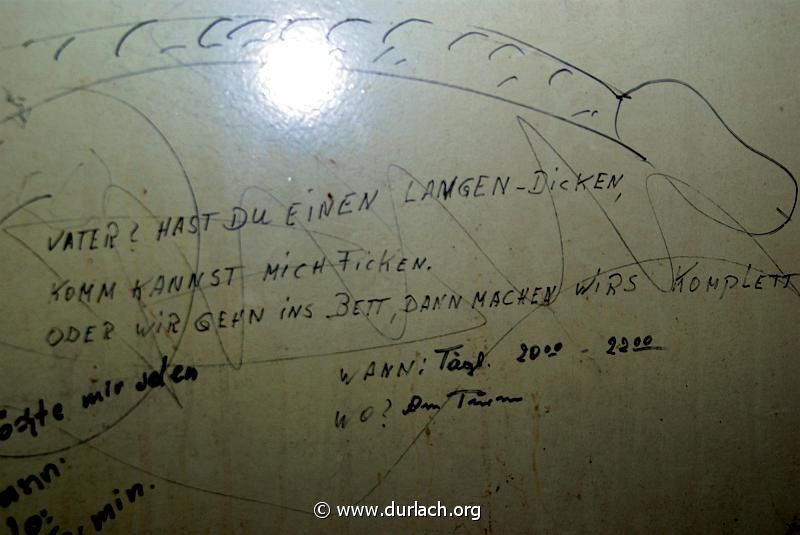 VATER? HAST DU EINEN LANGEN-DICKEN,
KOMM KANNST MICH FICKEN.
ODER WIR GEHN INS BETT, DANN MACHEN WIRS KOMPLETT
WANN: Tägl. 20⁰⁰ - 22⁰⁰
WO? Am Turm
mir
min.
© www.durlach.org